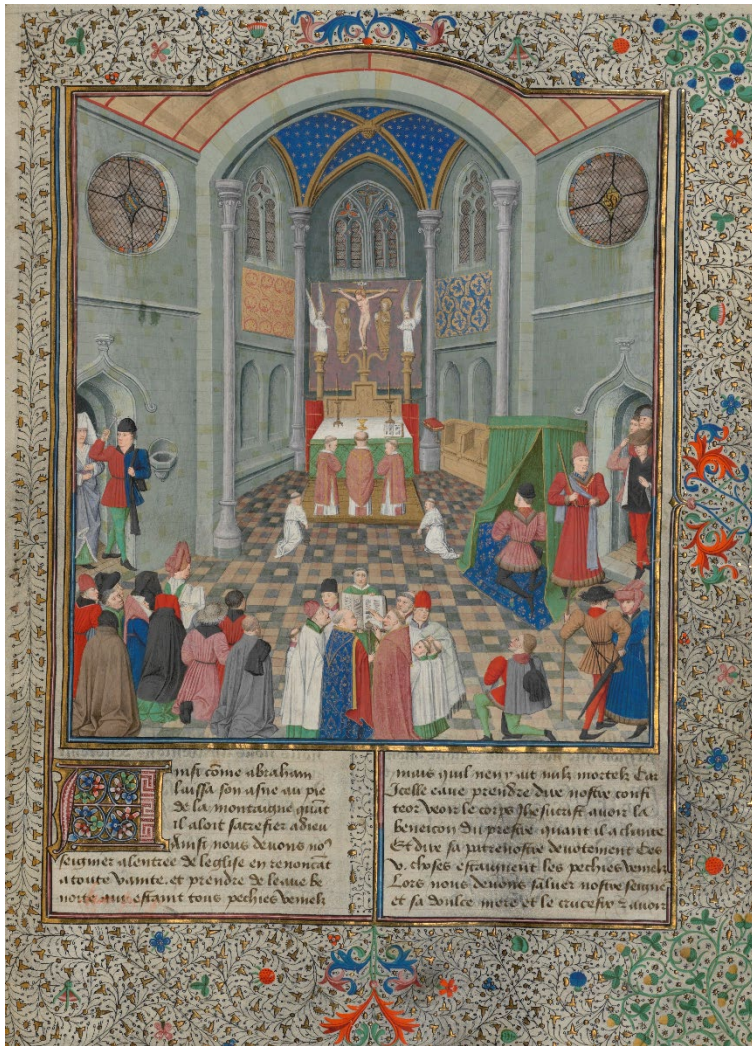 Ainsi cōme abraham
laissa son asne au pie
de la montaigne quāt
il aloit sacrefier a dieu
Ainsi nous deuons noꝰ
seigner a lentree de leglise en renoncāt
a toute vanite. et prendre de leaue be
noite qui estaint tous pechies venielz
mais quil nen y ait nulz mortelz Car
icelle eaue prendre dire nostre confi
teor veoir le corps Jhesucrist auoir la
beneicon du prestre quant il a chante
Et dire sa patrenostre deuotement Ces
v. choses estaingnent les pechies venielz
Lors nous deuons saluer nostre seigneur
et sa doulce mere et le crucefix ⁊ auoir